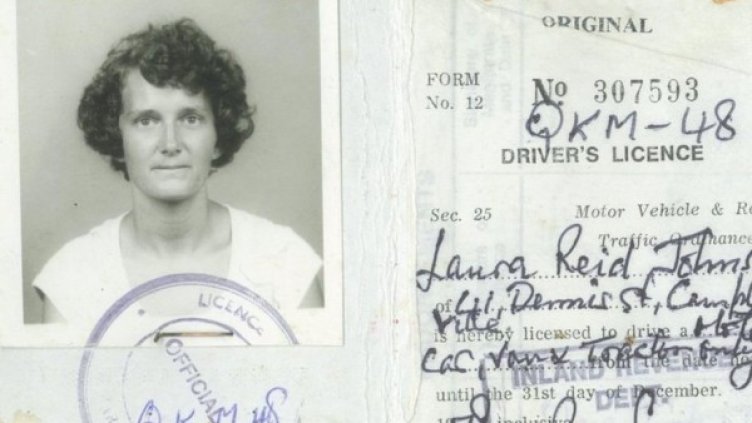 LICENCE
OFFICIAL
QKM-48
ORIGINAL
FORM
No. 12
No 307593
QKM-48
DRIVER'S LICENCE
Sec. 25 Motor Vehicle & R
Traffic Ordinance
Laura Reid Johns
of 41, Dennis St, Campb
ville
is hereby licensed to drive a
Car, Van & Tractor only
from the date
INLAND REVENUE
DEPT.
until the 31st day of December.
inclusive